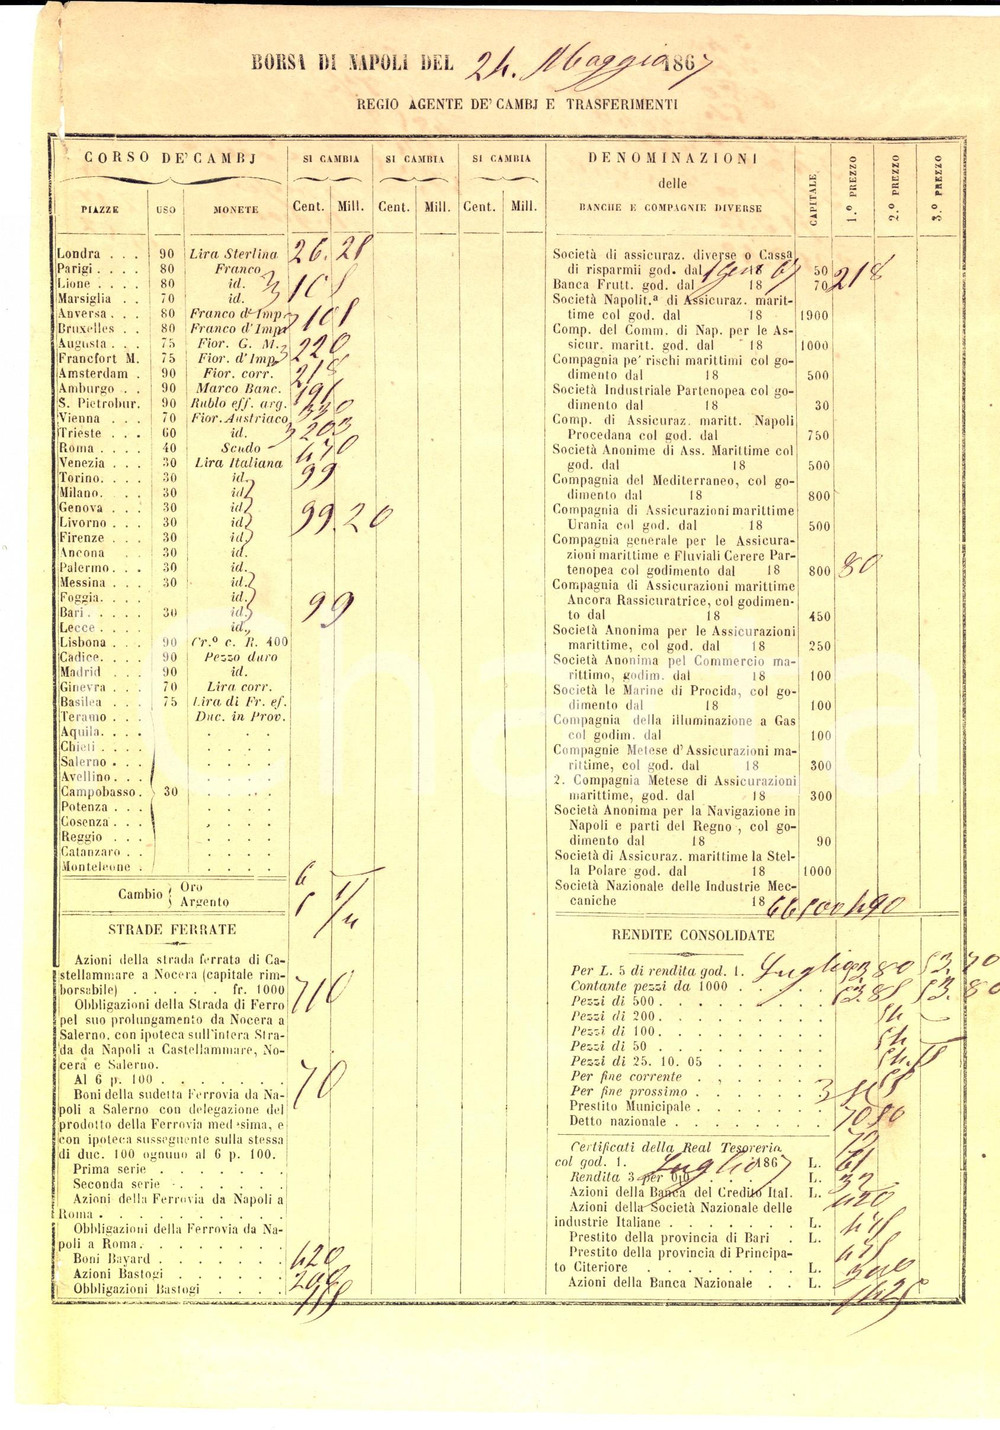 BORSA DI NAPOLI DEL 24. Maggio 1867
REGIO AGENTE DE' CAMBJ E TRASFERIMENTI
CORSO DE' CAMBJ
SI CAMBIA SI CAMBIA SI CAMBIA
PIAZZE USO MONETE Cent. Mill. Cent. Mill. Cent. Mill.
Londra . . . 90 Lira Sterlina 26. 28
Parigi . . . 80 Franco
Lione . . . . 80 id.
Marsiglia . . 70 id.
Anversa . . . 80 Franco d'Imp.
Bruxelles . . 80 Franco d'Imp.
Augusta . . . 75 Fior. G. M. 220
Francfort M. 75 Fior. d'Imp.
Amsterdam . 90 Fior. corr. 218
Amburgo . . 90 Marco Banc.
S. Pietrobur. 90 Rublo eff. arg.
Vienna . . . 70 Fior. Austriaco
Trieste . . . 60 id. 203
Roma . . . . 40 Scudo
Venezia . . . 30 Lira Italiana 99
Torino. . . . 30 id.
Milano. . . . 30 id.
Genova . . . 30 id. 99. 20
Livorno . . . 30 id.
Firenze . . . 30 id.
Ancona . . . 30 id.
Palermo. . . 30 id.
Messina . . . 30 id.
Foggia. . . . id.
Bari . . . . . 30 id. 99
Lecce . . . . id.
Lisbona . . . 90 Cr.º c. R. 400
Cadice. . . . 90 Pezzo duro
Madrid . . . 90 id.
Ginevra . . . 70 Lira corr.
Basilea . . . 75 Lira di Fr. ef.
Teramo . . . Duc. in Prov.
Aquila. . . .
Chieti . . . .
Salerno . . .
Avellino. . . .
Campobasso . 30
Potenza . . .
Cosenza . . .
Reggio . . .
Catanzaro . .
Monteleone .
Cambio Oro 6
Argento
STRADE FERRATE
Azioni della strada ferrata di Ca-
stellammare a Nocera (capitale rim-
borsabile) . . . . . fr. 1000 710
Obbligazioni della Strada di Ferro
pel suo prolungamento da Nocera a
Salerno, con ipoteca sull'intera Stra-
da da Napoli a Castellammare, No-
cera e Salerno.
Al 6 p. 100 . . . . . . . 70
Boni della sudetta Ferrovia da Na-
poli a Salerno con delegazione del
prodotto della Ferrovia medesima, e
con ipoteca susseguente sulla stessa
di duc. 100 ognuno al 6 p. 100.
Prima serie . . . . . . .
Seconda serie . . . . . .
Azioni della Ferrovia da Napoli a
Roma . . . . . . . . . .
Obbligazioni della Ferrovia da Na-
poli a Roma. . . . . . . .
Boni Bayard . . . . . . . 420
Azioni Bastogi . . . . . . 200
Obbligazioni Bastogi . . . .
DENOMINAZIONI
delle
BANCHE E COMPAGNIE DIVERSE
CAPITALE 1.º PREZZO 2.º PREZZO 3.º PREZZO
Società di assicuraz. diverse o Cassa
di risparmii god. dal 18 67 50 218
Banca Frutt. god. dal 18 70
Società Napolit.ª di Assicuraz. marit-
time col god. dal 18 1900
Comp. del Comm. di Nap. per le As-
sicur. maritt. god. dal 18 1000
Compagnia pe' rischi marittimi col go-
dimento dal 18 500
Società Industriale Partenopea col go-
dimento dal 18 30
Comp. di Assicuraz. maritt. Napoli
Procedana col god. dal 750
Società Anonime di Ass. Marittime col
god. dal 18 500
Compagnia del Mediterraneo, col go-
dimento dal 18 800
Compagnia di Assicurazioni marittime
Urania col god. dal 18 500
Compagnia generale per le Assicura-
zioni marittime e Fluviali Cerere Par-
tenopea col godimento dal 18 800 80
Compagnia di Assicurazioni marittime
Ancora Rassicuratrice, col godimen-
to dal 18 450
Società Anonima per le Assicurazioni
marittime, col god. dal 18 250
Società Anonima pel Commercio ma-
rittimo, godim. dal 18 100
Società le Marine di Procida, col go-
dimento dal 18 100
Compagnia della illuminazione a Gas
col godim. dal 100
Compagnie Metese d'Assicurazioni ma-
rittime, col god. dal 18 300
2. Compagnia Metese di Assicurazioni
marittime, god. dal 18 300
Società Anonima per la Navigazione in
Napoli e parti del Regno, col go-
dimento dal 18 90
Società di Assicuraz. marittime la Stel-
la Polare god. dal 18 1000
Società Nazionale delle Industrie Mec-
caniche 18 66 500 490
RENDITE CONSOLIDATE
Per L. 5 di rendita god. 1. Luglio 53. 80 53. 70
Contante pezzi da 1000 . . . . . 53. 85 53. 80
Pezzi di 500. . . . . . . . .
Pezzi di 200. . . . . . . . . 54
Pezzi di 100. . . . . . . . .
Pezzi di 50 . . . . . . . . . 54
Pezzi di 25. 10. 05 . . . . . . 54.
Per fine corrente . . . . . . .
Per fine prossimo . . . . . . .
Prestito Municipale . . . . . . .
Detto nazionale . . . . . . . . 70 80
Certificati della Real Tesoreria
col god. 1. Luglio 1867 L.
Rendita 3 per 0/0 . . . . . L.
Azioni della Banca del Credito Ital. L. 420
Azioni della Società Nazionale delle
industrie Italiane . . . . . . . L.
Prestito della provincia di Bari . L.
Prestito della provincia di Principa-
to Citeriore . . . . . . . . L. 300
Azioni della Banca Nazionale . . L. 1425